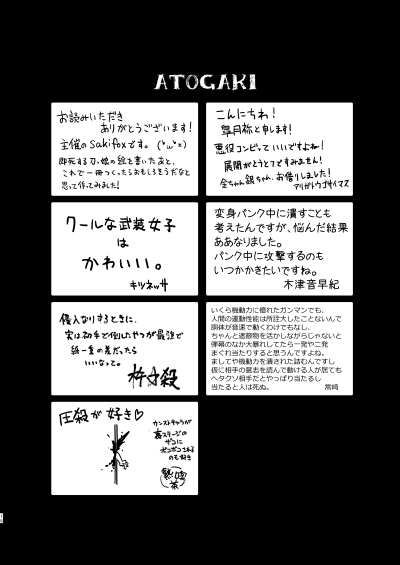 ATOGAKI
お読みいただき
ありがとうございます!
主催のsakifoxです。(*'ω'*)
即死する刀娘の絵を書いたあと、
これで一冊つくったらおもしろそうだなと
思って作ってみました!
こんにちわ!
皐月弥と申します!
悪役コンビっていいですよね!
展開がとうとつですみません!
金ちゃん銀ちゃん、お借りしました!
アリガトウゴザイマス
クールな武装女子
は
かわいい。
キツネッサ
変身バンク中に潰すことも
考えたんですが、悩んだ結果
ああなりました。
バンク中に攻撃するのも
いつかかきたいですね。
木津音早紀
侵入なりするときに、
実は初手で倒したやつが最強で
紙一重の差だったら
いいなって。
いくら機動力に優れたガンマンでも、
人間の運動性能は所詮大したことないんで
胴体が音速で動くわけでもなし、
ちゃんと遮蔽物を活かしながらじゃないと
弾幕のなか大暴れしてたら一発や二発
まぐれ当たりすると思うんですよね。
ましてや機動力を潰された詰むんですし
仮に相手の意志を読んで動ける人が居ても
ヘタクソ相手だとやっぱり当たるし
当たると人は死ぬ。 常崎
圧殺が好き♡
カンストキャラが
裏ステージの
ザコに
ボコボコされる
のも好き